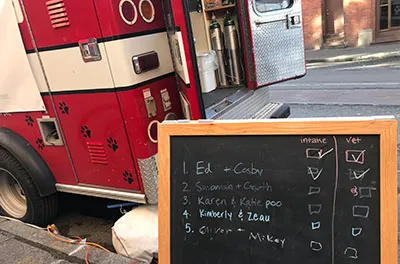 intake Vet
1. Ed + Cosby
2. Savannah + Garth
3. Karen & Katie poo
4. Kimberly & Zeau
5. Oliver + Mikey